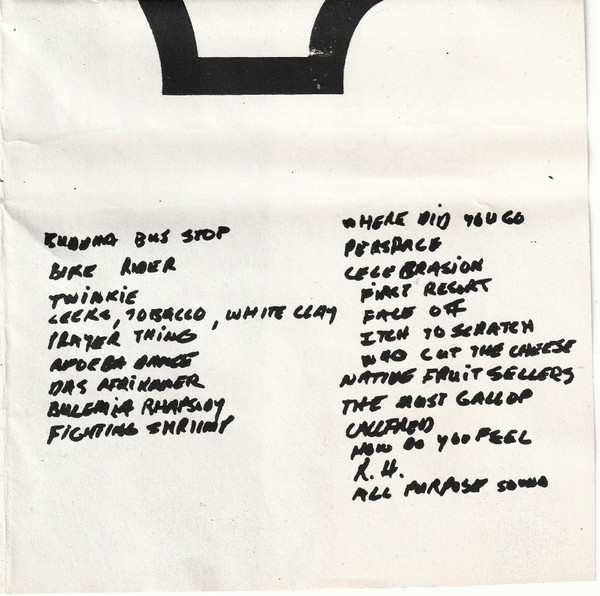 BUDDHA BUS STOP
BIKE RIDER
TWINKIE
LEEKS, TOBACCO, WHITE CLAY
PRAYER THING
AMOEBA DANCE
DAS AFRIKANER
BULEMIA RHAPSODY
FIGHTING SHRIIMP
WHERE DID YOU GO
PERSPACE
CELEBRASION
FIRST RESORT
FACE OFF
ITCH TO SCRATCH
WHO CUT THE CHEESE
NATIVE FRUIT SELLERS
THE MUST GALLOP
HOW DO YOU FEEL
R. H.
ALL PURPOSE SOUND